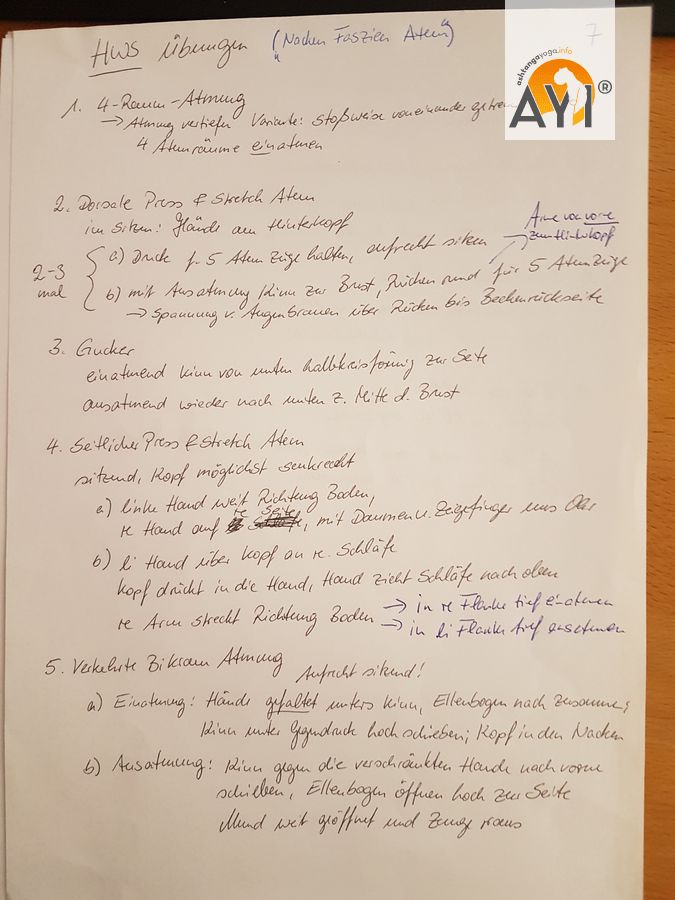 HWS Übungen ("Nacken Faszien Atem")
7
ashtangayoga.info
AYI®
1. 4-Raum-Atmung
→ Atmung vertiefen Variante: stoßweise voneinander
4 Atemräume einatmen
2. Dorsale Press & Stretch Atem
im Sitzen: Hände am Hinterkopf
Arme von vorne
zum Hinterkopf
2-3 mal
a) Druck f. 5 Atemzüge halten, aufrecht sitzen
b) mit Ausatmung Kinn zur Brust, Rücken rund für 5 Atemzüge
→ Spannung v. Augenbrauen über Rücken bis Beckenrückseite
3. Gucker
einatmend Kinn von unten halbkreisförmig zur Seite
ausatmend wieder nach unten z. Mitte d. Brust
4. Seitlicher Press & Stretch Atem
sitzend, Kopf möglichst senkrecht
a) linke Hand weit Richtung Boden,
re Hand auf re Seite, mit Daumen u. Zeigefinger ums Ohr
b) li Hand über Kopf an re. Schläfe
Kopf drückt in die Hand, Hand zieht Schläfe nach oben
re Arm streckt Richtung Boden → in re Flanke tief einatmen
→ in li Flanke tief ausatmen
5. Verkehrte Bikram Atmung Aufrecht sitzend!
a) Einatmung: Hände gefaltet unters Kinn, Ellenbogen nach zusammen;
Kinn unter Gegendruck hoch schieben; Kopf in den Nacken
b) Ausatmung: Kinn gegen die verschränkten Hände nach vorne
schieben, Ellenbogen öffnen hoch zur Seite
Mund weit geöffnet und Zunge raus